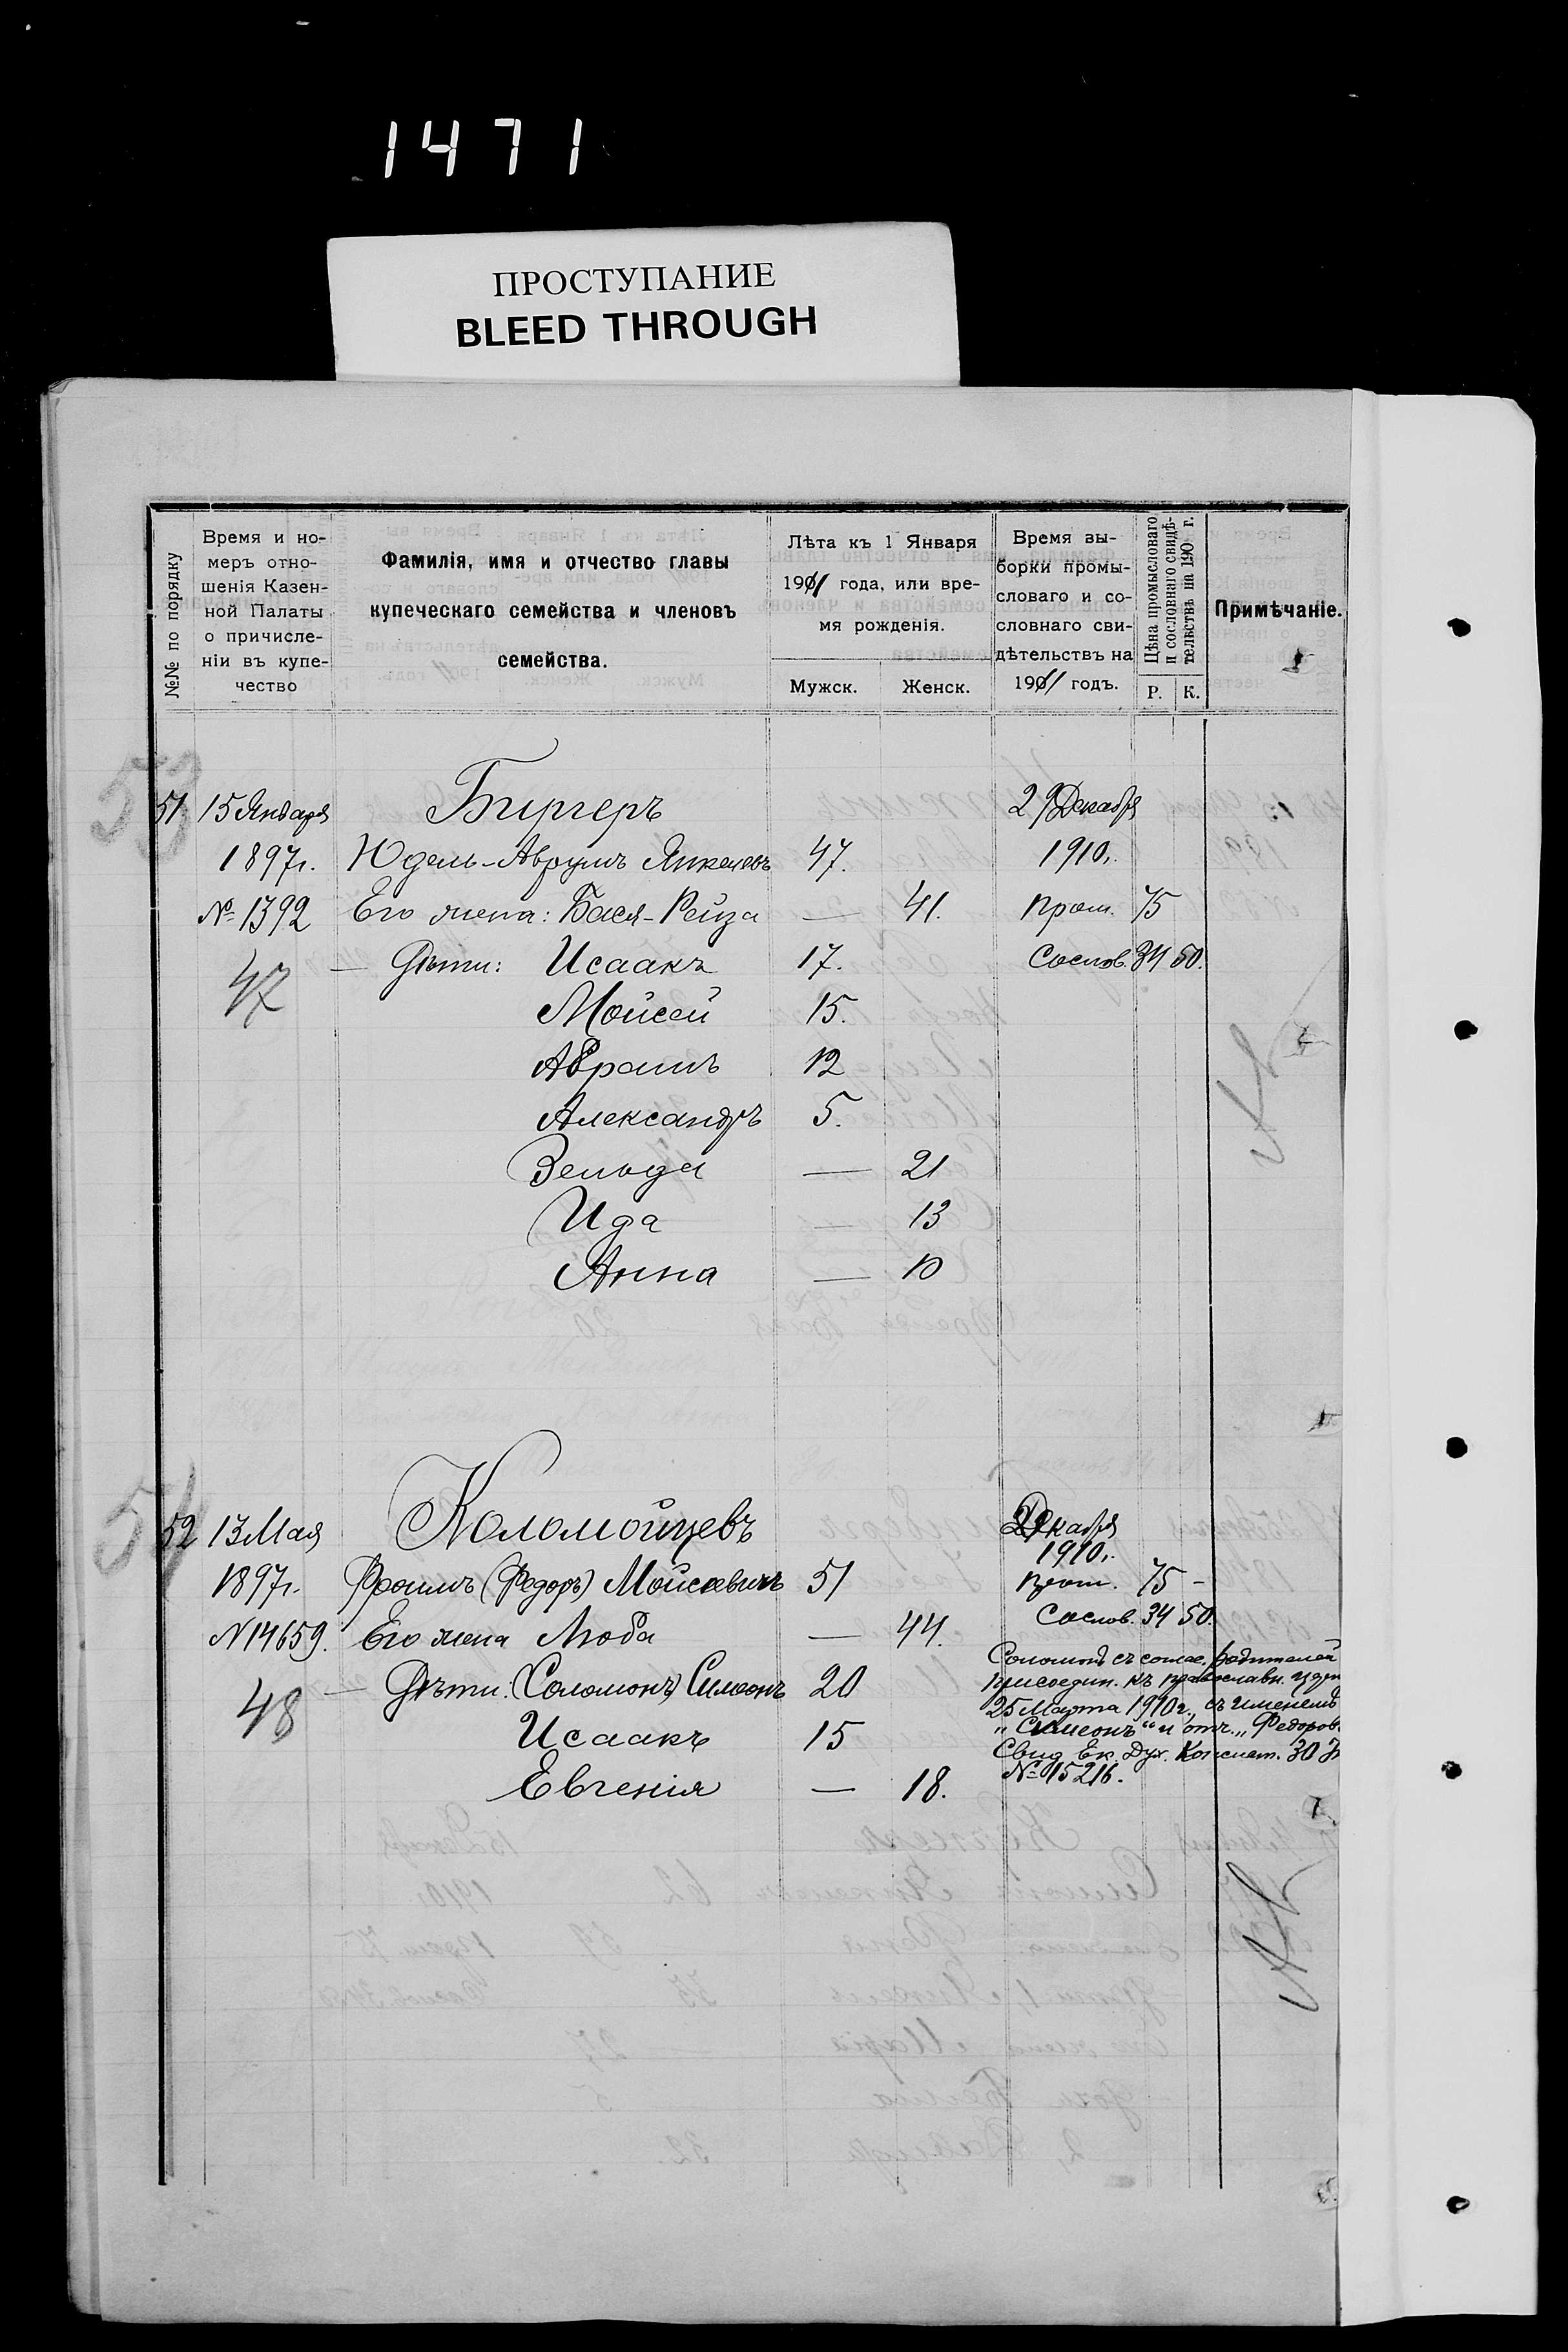 1471
ПРОСТУПАНИЕ
BLEED THROUGH
№№ по порядку
Время и но-
меръ отно-
шенія Казен-
ной Палаты
о причисле-
ніи въ купе-
чество
Фамилія, имя и отчество главы
купеческаго семейства и членовъ
семейства.
Лѣта къ 1 Января
1911 года, или вре-
мя рожденія.
Мужск. Женск.
Время вы-
борки промы-
словаго и со-
словнаго сви-
дѣтельствъ на
1911 годъ.
Цѣна промысловаго
и сословнаго свидѣ-
тельствъ на 190 г.
Р. К.
Примѣчаніе.
53
51 15 Января Биргеръ 29 Декабря
1897г. Юдель-Аврумъ Янкелевъ 47. 1910г.
№ 1392 Его жена: Бася-Рейза — 41. Пром. 75
47 — Дѣти: Исаакъ 17. Сослов. 34 50.
Мойсей 15.
Абрамъ 12
Александръ 5.
Зельда — 21
Ида — 13
Анна — 10
54
52 13 Мая Коломойцевъ Декабря
1910г.
1897г. Фроимъ (Федоръ) Мойсеевичъ 51 Пром. 75 -
№ 14659. Его жена Люба — 44. Сослов. 34 50.
48 — Дѣти: (Соломонъ) Симеонъ 20
Исаакъ 15
Евгенія — 18.
Соломонъ съ соглас. родителей
присоедин. къ православн.
25 Марта 1910г., съ именемъ
„Симеонъ“ и отч. „Федоров.
Свид. Ек. Дух. Консист. 30
№ 15216.